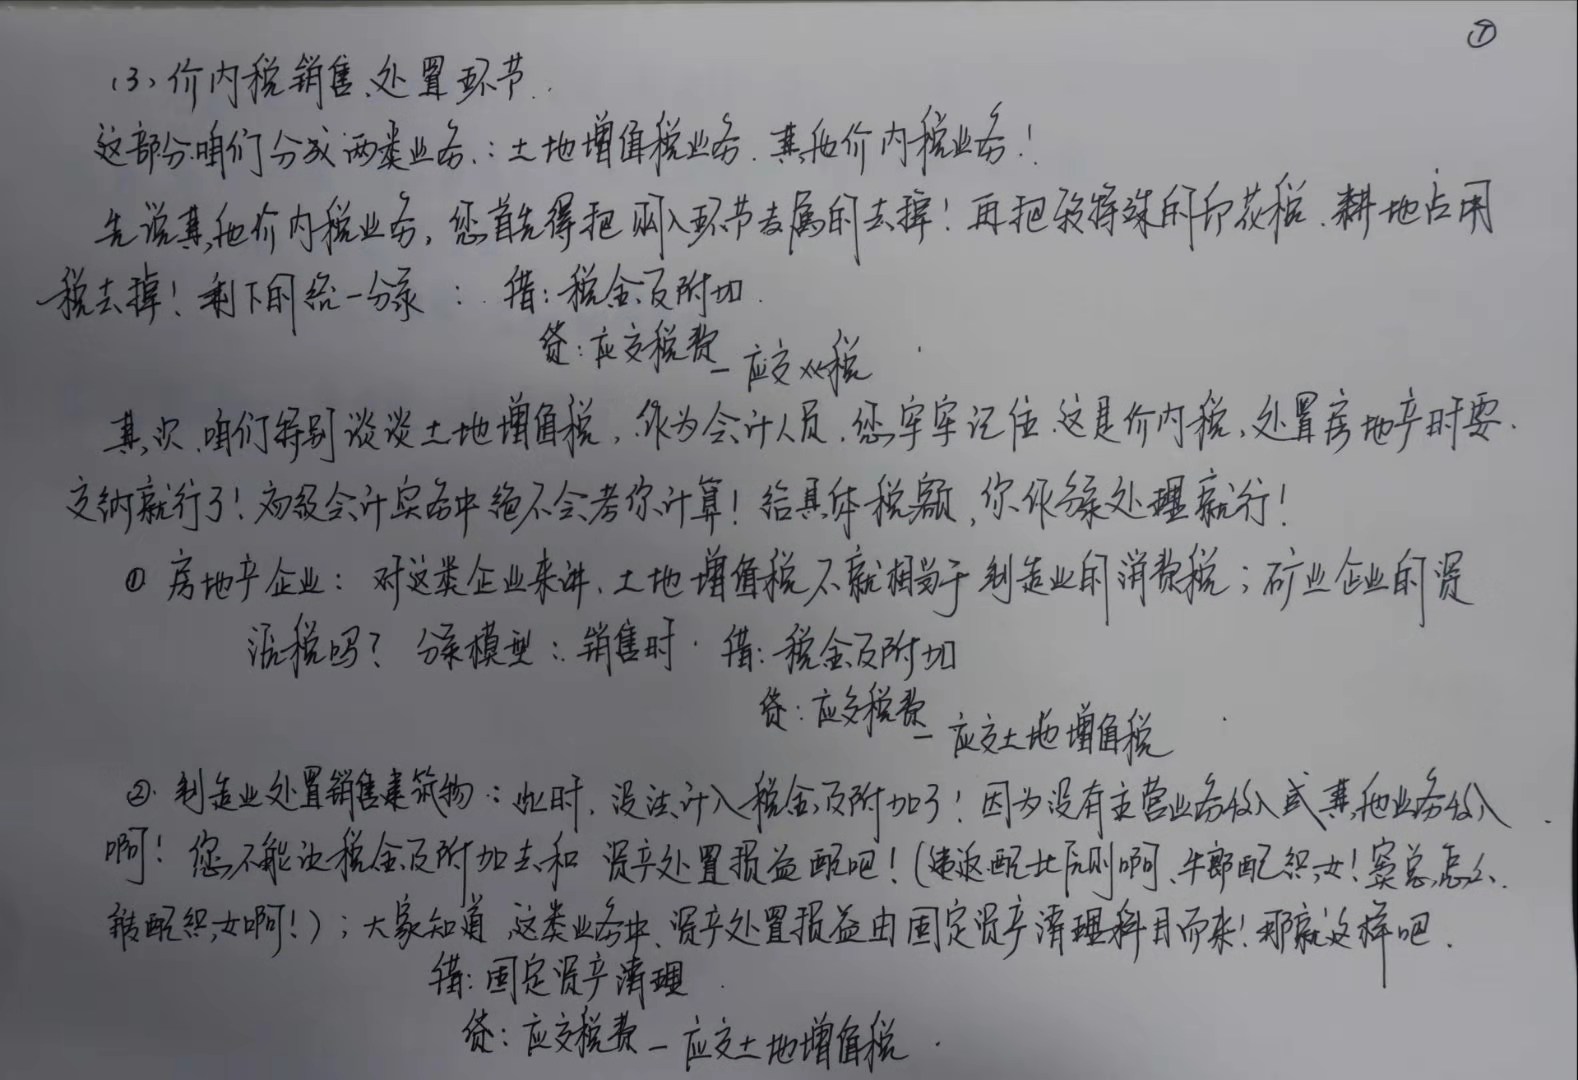 ⑦
(3)、价内税销售、处置环节.
这部分咱们分成两类业务:土地增值税业务.其他价内税业务!
先说其他价内税业务,您首先得把购入环节专属的去掉!再把较特殊的印花税、耕地占用
税去掉!剩下的给一分录: 借:税金及附加
贷:应交税费—应交××税
其次,咱们特别谈谈土地增值税,作为会计人员,您牢牢记住.这是价内税,处置房地产时要
交纳就行了!初级会计实务中绝不会考你计算!给具体税额,你作分录处理就行!
① 房地产企业:对这类企业来讲,土地增值税不就相当于制造业的消费税;矿业企业的资
源税吗? 分录模型:销售时. 借:税金及附加
贷:应交税费—应交土地增值税
②.制造业处置销售建筑物:此时,没法计入税金及附加了!因为没有主营业务收入或其他业务收入
啊!您不能让税金及附加去和 资产处置损益配吧!(违返配比原则啊、牛郎配织女!窦总怎么
配织女啊!);大家知道,这类业务中、资产处置损益由固定资产清理科目而来!那就这样吧.
借:固定资产清理
贷:应交税费—应交土地增值税.